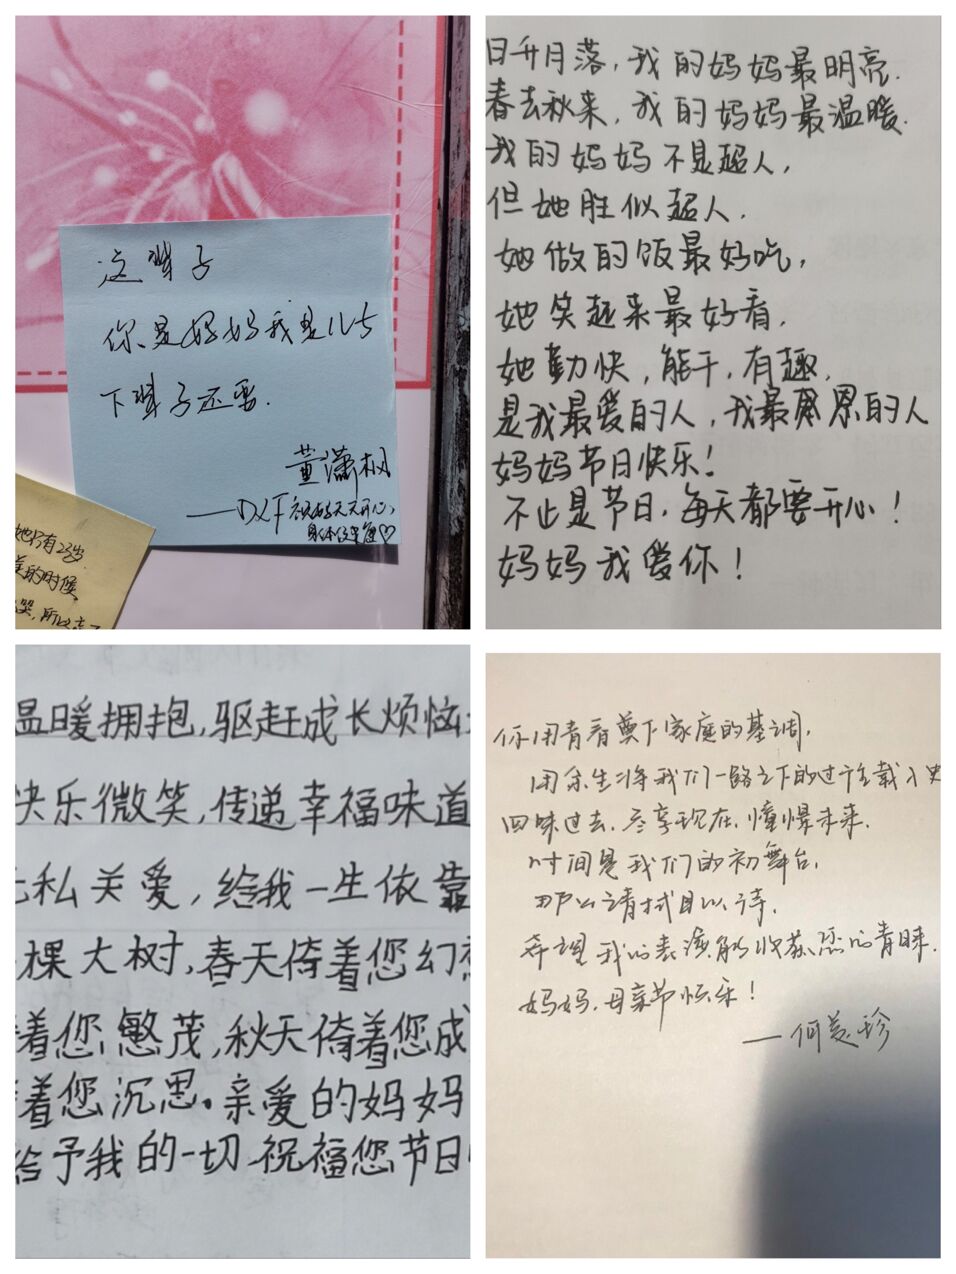 这辈子
你是妈妈我是儿子
下辈子还要.
董潇枫
——DXF祝妈妈天天开心,
身体健康♡
有23岁
的时候
笑,所以
日升月落,我的妈妈最明亮.
春去秋来,我的妈妈最温暖.
我的妈妈不是超人,
但她胜似超人.
她做的饭最好吃,
她笑起来最好看.
她勤快,能干,有趣,
是我最爱的人,我最感恩的人
妈妈节日快乐!
不止是节日,每天都要开心!
妈妈我爱你!
温暖拥抱,驱赶成长烦恼
快乐微笑,传递幸福味道
私关爱,给我一生依靠
棵大树,春天倚着您幻
着您繁茂,秋天倚着您成
着您沉思。亲爱的妈妈
给予我的一切.祝福您节日
你用青春奠下家庭的基调,
用余生将我们一路之下的过往载入史
回味过去,尽享现在,憧憬未来.
时间是我们的初舞台,
那么请拭目以待.
希望我的表演能收获您的青睐.
妈妈,母亲节快乐!
——何美珍